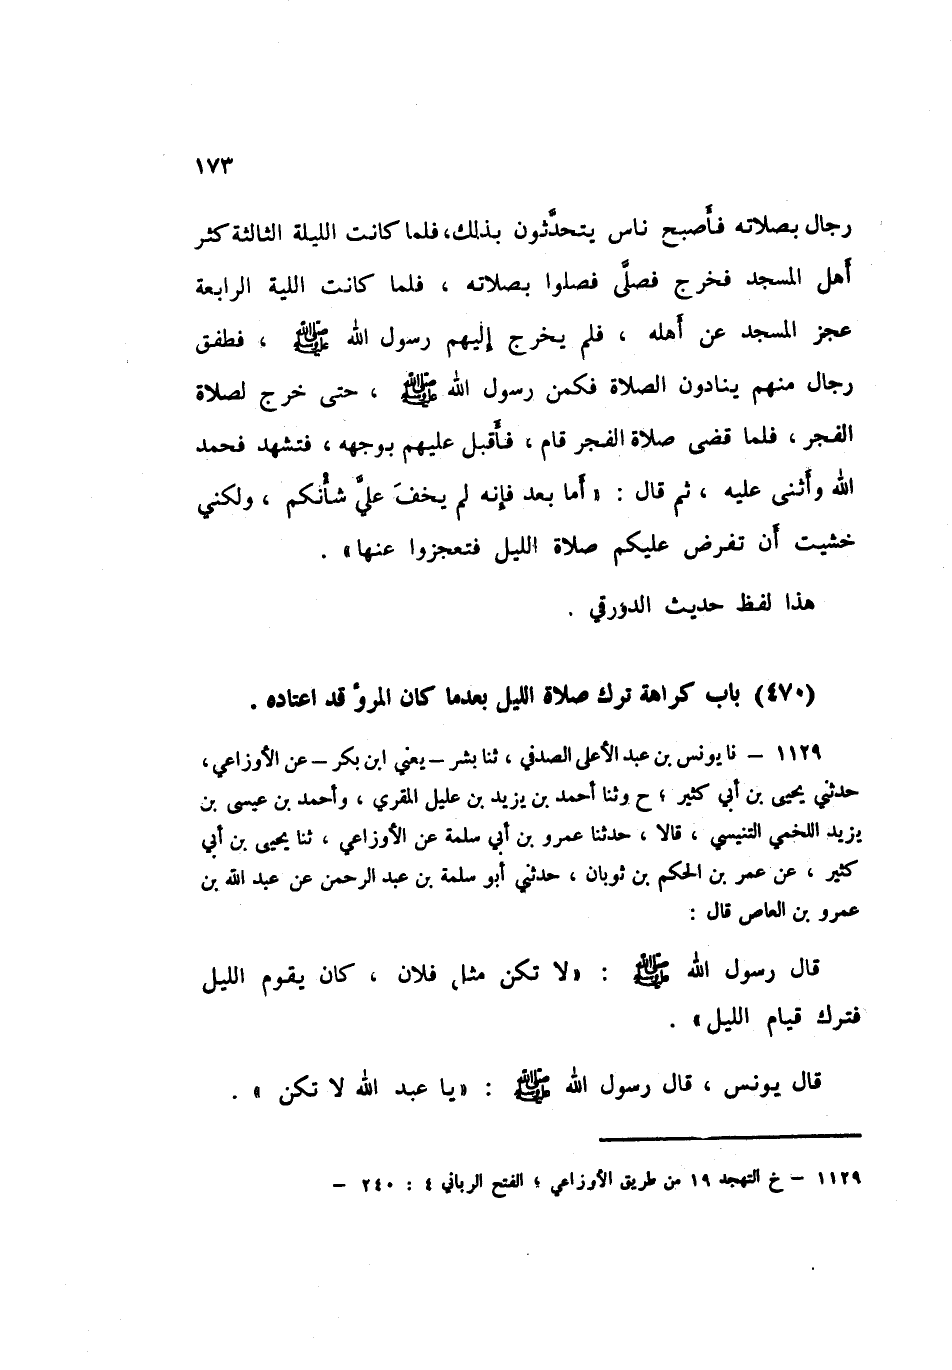 ١٧٣
رجال بصلاته فأصبح ناس يتحدَّثون بذلك، فلما كانت الليلة الثالثة كثر
أهل المسجد فخرج فصلَّى فصلوا بصلاته ، فلما كانت اللية الرابعة
عجز المسجد عن أهله ، فلم يخرج إليهم رسول الله ﷺ ، فطفق
رجال منهم ينادون الصلاة فكمن رسول الله ﷺ ، حتى خرج لصلاة
الفجر ، فلما قضى صلاة الفجر قام ، فأقبل عليهم بوجهه ، فتشهد فحمد
الله وأثنى عليه ، ثم قال : « أما بعد فإنه لم يخفَ عليَّ شأنكم ، ولكني
خشيت أن تفرض عليكم صلاة الليل فتعجزوا عنها» .
هذا لفظ حديث الدورقي .
(٤٧٠) باب كراهة ترك صلاة الليل بعدما كان المرؤ قد اعتاده .
١١٢٩ – نا يونس بن عبد الأعلى الصدفي ، ثنا بشر – يعني ابن بكر – عن الأوزاعي ،
حدثني يحيى بن أبي كثير ؛ ح وثنا أحمد بن يزيد بن عليل المقري ، وأحمد بن عيسى بن
يزيد اللخمي التنيسي ، قالا ، حدثنا عمرو بن أبي سلمة عن الأوزاعي ، ثنا يحيى بن أبي
كثير ، عن عمر بن الحكم بن ثوبان ، حدثني أبو سلمة بن عبد الرحمن عن عبد الله بن
عمرو بن العاص قال :
قال رسول الله ﷺ : «لا تكن مثل فلان ، كان يقوم الليل
فترك قيام الليل» .
قال يونس ، قال رسول الله ﷺ : «يا عبد الله لا تكن » .
١١٢٩ – خ التهجد ١٩ من طريق الأوزاعي ؛ الفتح الرباني ٤ : ٢٤٠ –